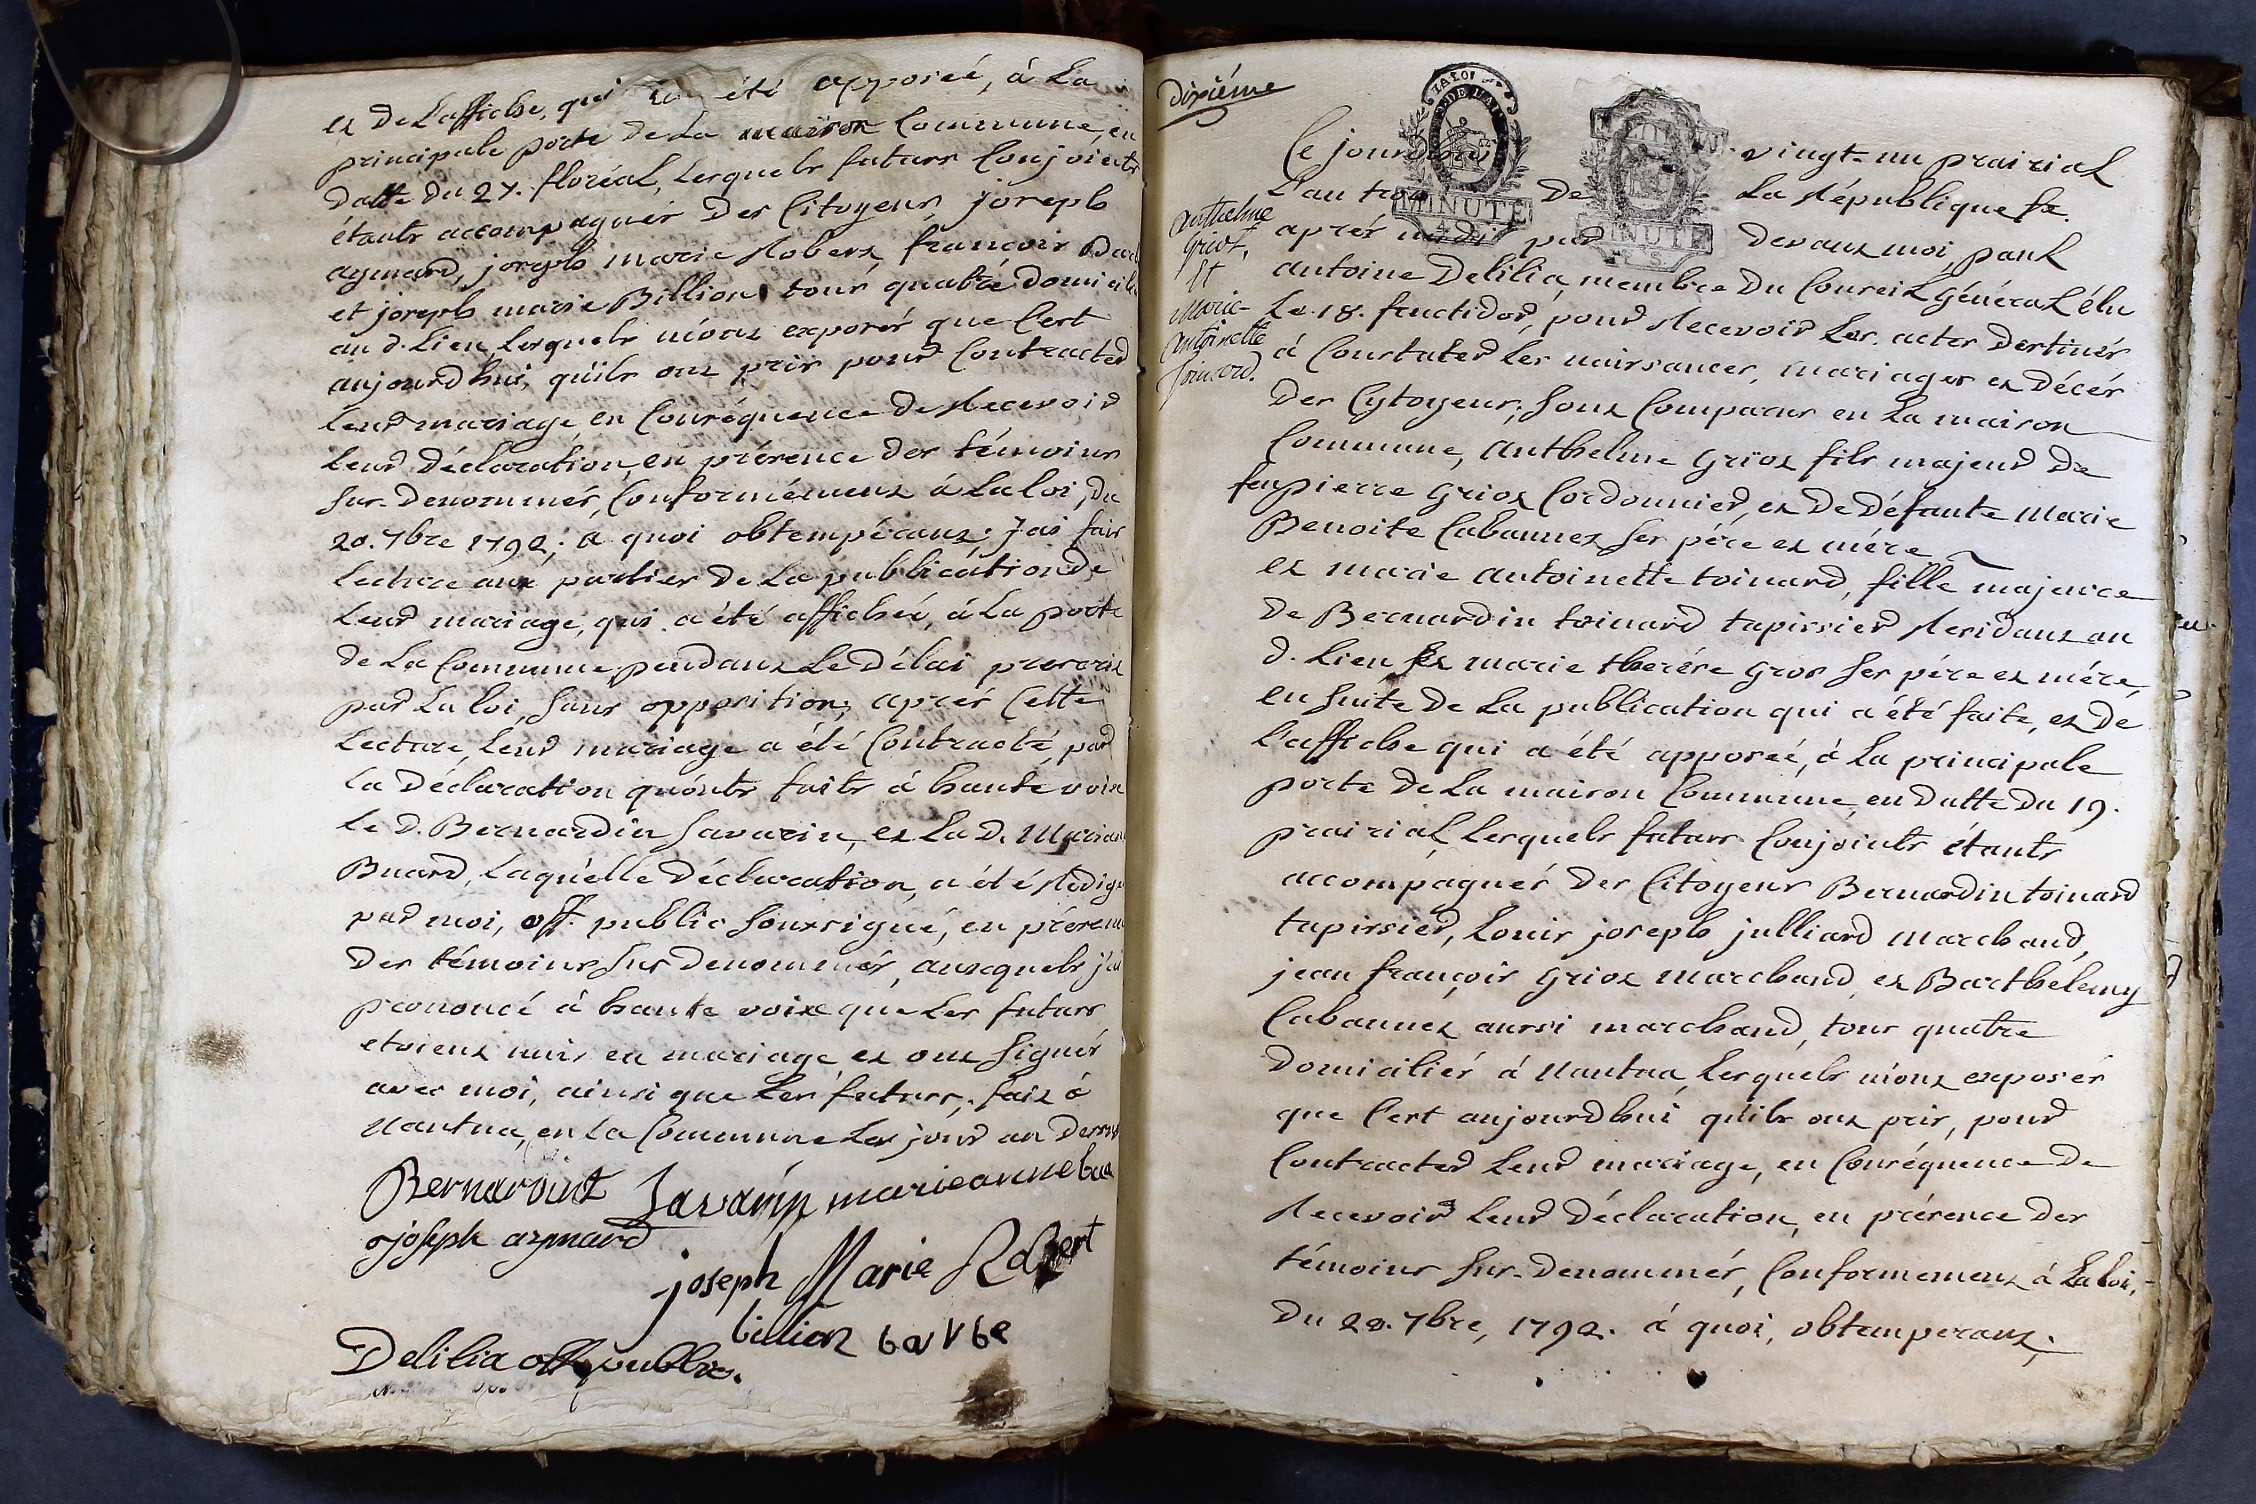 et De L'affiche, qui a été apposée, à La
principale porte de La maison Commune, en
datte du 27. floréal, Lesquels futurs Conjoints
étants accompagnés Des Citoyens joseph
aymard, joseph marie Robert, françois
et joseph marie Billion tous quatre domicilés
au d. Lieu Lesquels m'ont exposés que C'est
aujourd'hui, qu'ils ont pris pour Contracter
leur mariage, en Conséquence de Recevoir
leur Déclaration, en présence des témoins
sus-denommés, Conformément à La loi, du
20. 7bre 1792; a quoi obtempérant; J'ai fait
Lecture aux parties de La publication de
Leur mariage, qui a été affichée, à La porte
de La Commune, pendant Le Délai prescrit
par La loi, sans opposition; après Cette
Lecture, leur mariage a été Contracté, par
La Déclaration qu'onts faits à haute voix
Le d. Bernardin Savarin, et La d. Marianne
Buard, Laquelle Déclaration, a été Rédigé
par moi, off. public soussigné, en présence
Des témoins sus denommés, auxquels j'ai
prononcé à haute voix que Les futurs
etoient unis en mariage, et ont signés
avec moi, ainsi que Les futurs, fait à
Nantua, en La Commune Les jour an Dessus
Bernardint Savarin marieanne bua
joseph aymard
joseph Marie Robert
billion barbe
Delilia off. public.
Dixiéme
anthelme
griot,
et
Marie-
antoinette
toinard.
Ce jourd'hui vingt-un prairial
L'an trois De La République fe.
après midi par devant moi, paul
antoine Delilia, membre Du Conseil Général élu
Le 18. fructidor, pour Recevoir Les actes Destinés
à Constater Les naissances, mariages et Décés
Des Cytoyens; sont Comparus en La maison
Commune, anthelme griot fils majeur de
feu pierre griot Cordonnier, et De Défunte Marie
Benoite Cabannet ses pére et mére
et marie antoinette toinard, fille majeure
de Bernardin toinard tapissier Residant au
d. Lieu et marie therése gros ses pére et mére,
en suite De La publication qui a été faite, et De
L'affiche qui a été apposée, à La principale
porte De La maison Commune, en Datte Du 19.
prairial, Lesquels futurs Conjoints étants
accompagnés Des Citoyens Bernardin toinard
tapissier, Louis joseph julliard marchand,
jean françois griot marchand, et Barthelemy
Cabannet aussi marchand, tous quatre
Domiciliés à Nantua, Lesquels m'ont exposés
que C'est aujourd'hui qu'ils ont pris, pour
Contracter leur mariage, en Conséquence De
Recevoir leur Déclaration, en présence Des
témoins sus-Denommés, Conformement à La loi,
Du 20. 7bre, 1792. à quoi, obtemperant;
MINUTE
MINUTE